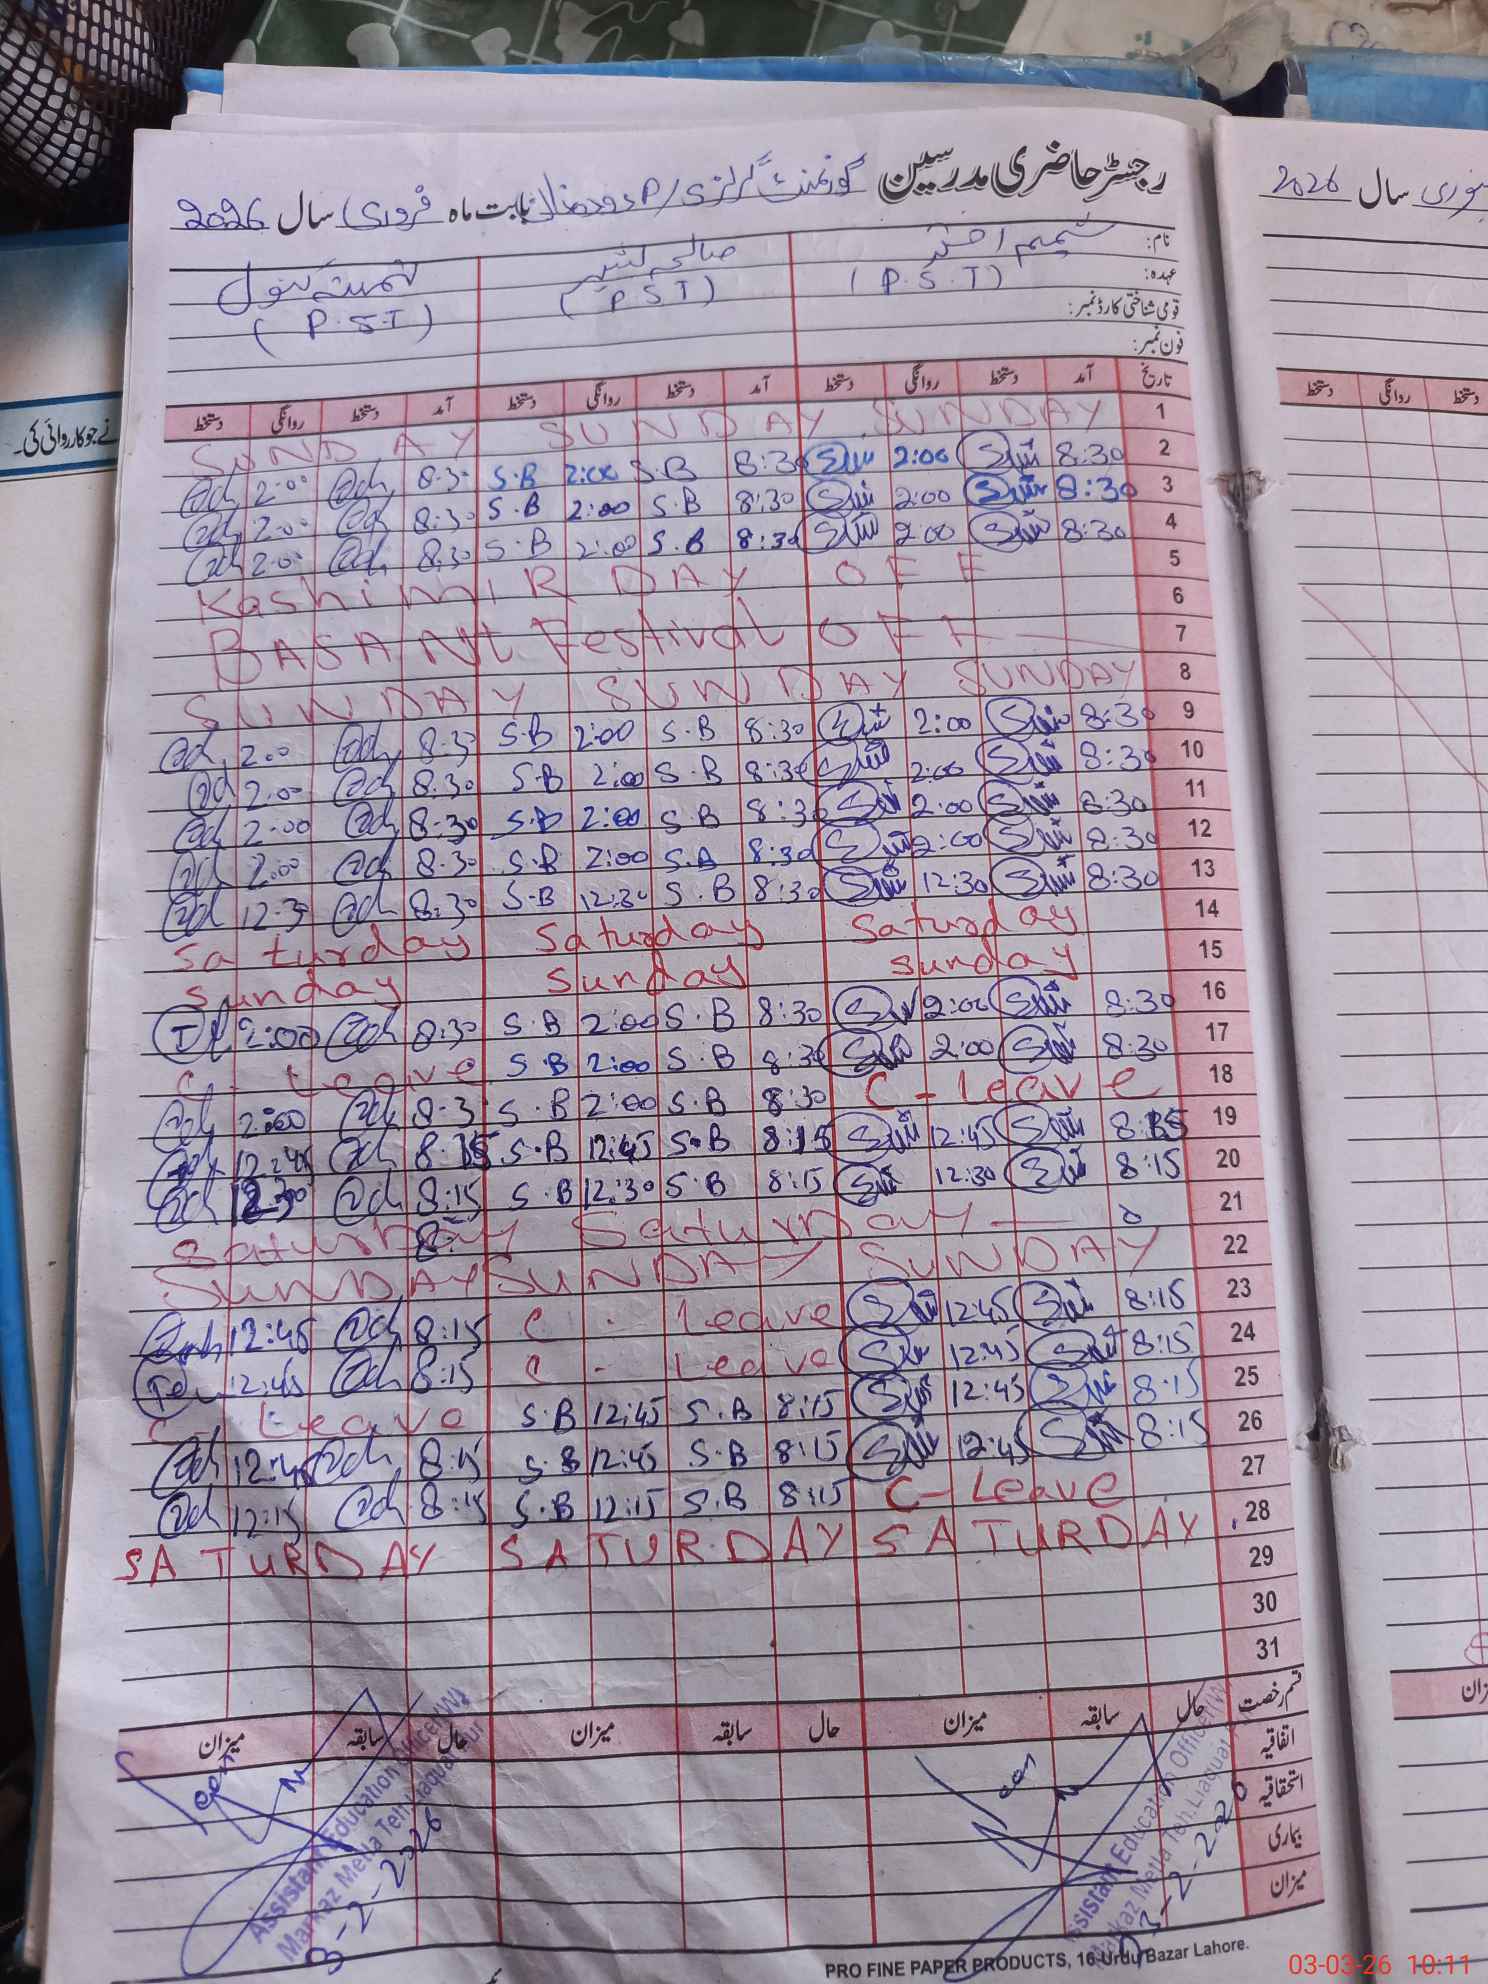 رجسٹر حاضری مدرسین گورنمنٹ گرلز بابت ماہ فروری سال 2026
سال 2026
نام: شمیم اختر
عہدہ: (P.S.T) (P.S.T) (P.S.T)
قومی شناختی کارڈ نمبر:
فون نمبر:
تاریخ آمد دستخط روانگی دستخط آمد دستخط روانگی دستخط آمد دستخط روانگی دستخط
دستخط روانگی دستخط
نے جو کارروائی کی۔
SUNDAY SUNDAY SUNDAY 1
2:00 8:30 S.B 2:00 S.B 8:30 2:00 8:30 2
2:00 8:30 S.B 2:00 S.B 8:30 2:00 8:30 3
2:00 8:30 S.B 2:00 S.B 8:30 2:00 8:30 4
KashimIR DAY OFF 5
6
BASANt Festival OFF 7
SUNDAY SUNDAY SUNDAY 8
2:00 8:30 S.B 2:00 S.B 8:30 2:00 8:30 9
2:00 8:30 S.B 2:00 S.B 8:30 2:00 8:30 10
2:00 8:30 S.B 2:00 S.B 8:30 2:00 8:30 11
2:00 8:30 S.B 2:00 S.B 8:30 2:00 8:30 12
12:30 8:30 S.B 12:30 S.B 8:30 12:30 8:30 13
Saturday Saturday Saturday 14
Sunday Sunday Sunday 15
2:00 8:30 S.B 2:00 S.B 8:30 2:00 8:30 16
C - Leave S.B 2:00 S.B 8:30 2:00 8:30 17
2:00 8:3 S.B 2:00 S.B 8:30 C - Leave 18
12:45 8:15 S.B 12:45 S.B 8:15 12:45 8:15 19
12:30 8:15 S.B 12:30 S.B 8:15 12:30 8:15 20
Saturday Saturday 21
SUNDAY SUNDAY SUNDAY 22
12:45 8:15 C - Leave 12:45 8:15 23
12:45 8:15 C - Leave 12:45 8:15 24
C - Leave S.B 12:45 S.B 8:15 12:45 8:15 25
12:45 8:15 S.B 12:45 S.B 8:15 12:45 8:15 26
12:15 8:15 S.B 12:15 S.B 8:15 C - Leave 27
SATURDAY SATURDAY SATURDAY 28
29
30
31
قسم رخصت حال سابقہ میزان حال سابقہ میزان حال سابقہ میزان
اتفاقیہ
استحقاقیہ
بیماری
میزان
Assistant Education Officer(W)
Markaz Metla Teh.Liaquat Pur
3-2-2026
Assistant Education Officer(W)
Markaz Metla Teh.Liaquat
3-2-2026
PRO FINE PAPER PRODUCTS, 16-Urdu Bazar Lahore.
03-03-26 10:11